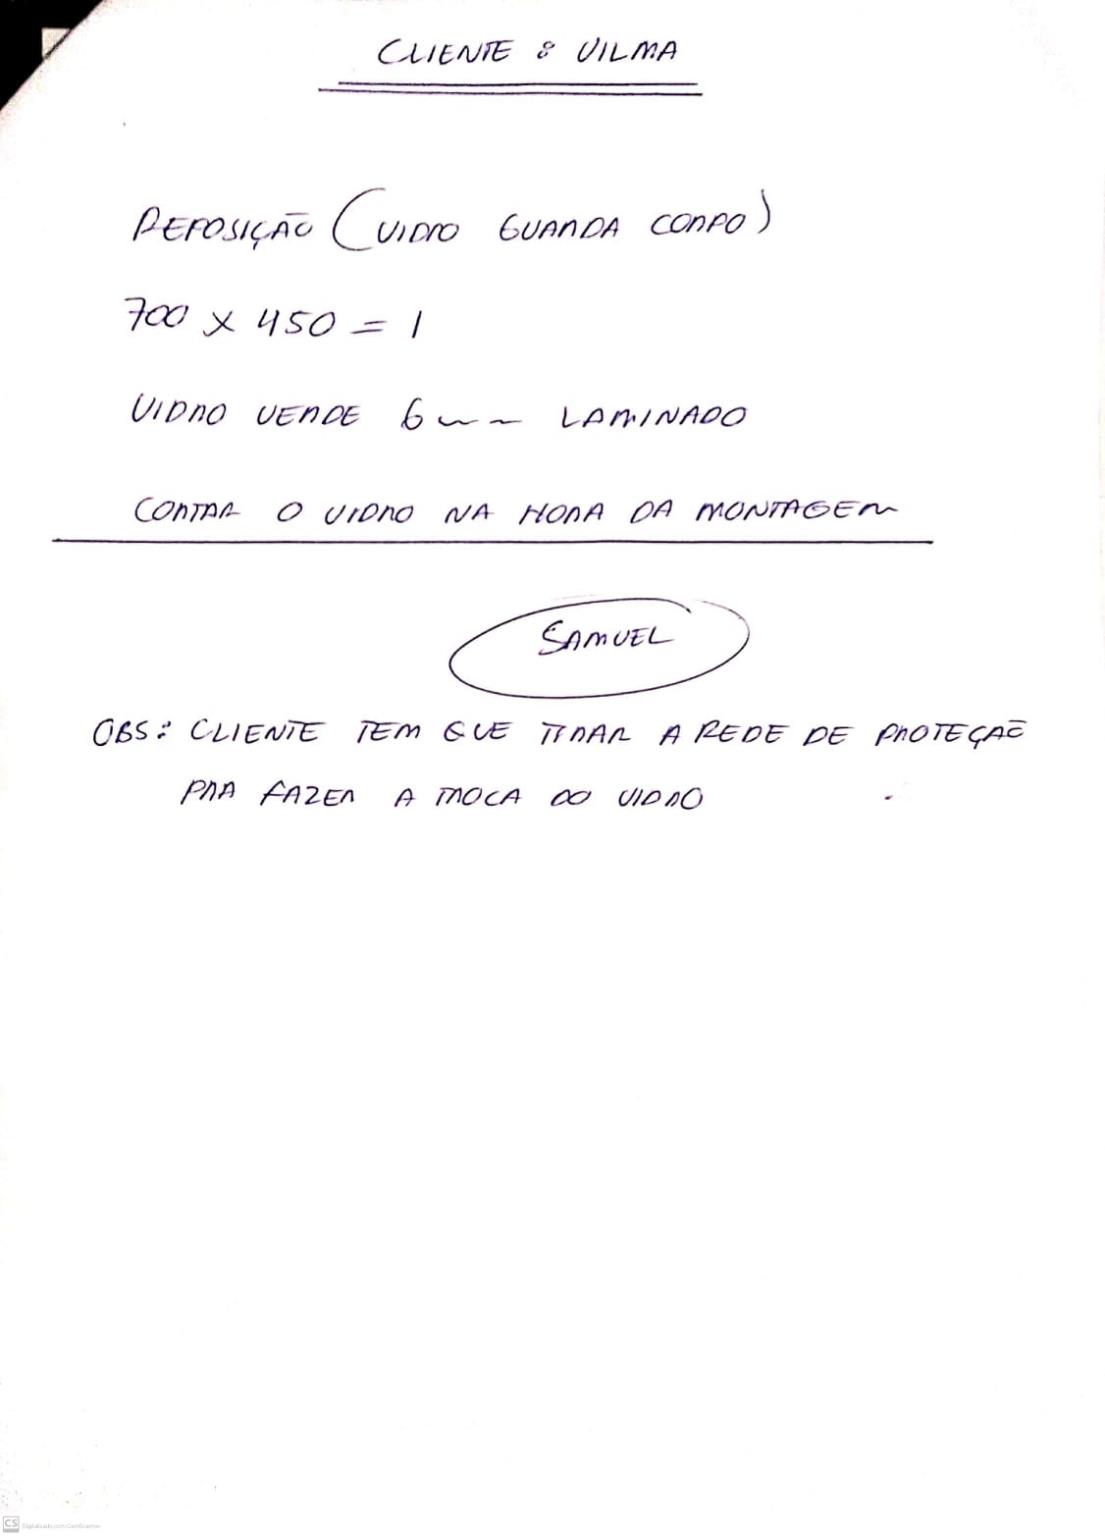 CLIENTE : VILMA
REPOSIÇÃO (VIDRO GUARDA CORPO)
700 x 450 = 1
VIDRO VERDE 6mm LAMINADO
CORTAR O VIDRO NA HORA DA MONTAGEM
SAMUEL
OBS: CLIENTE TEM QUE TIRAR A REDE DE PROTEÇÃO
PRA FAZER A TROCA DO VIDRO
CS Digitalizado com CamScanner